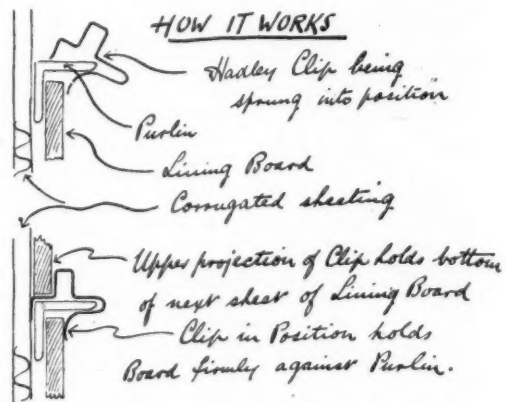 HOW IT WORKS
Hadley Clip being
sprung into position
Purlin
Lining Board
Corrugated sheeting
Upper projection of Clip holds bottom
of next sheet of Lining Board
Clip in Position holds
Board firmly against Purlin.